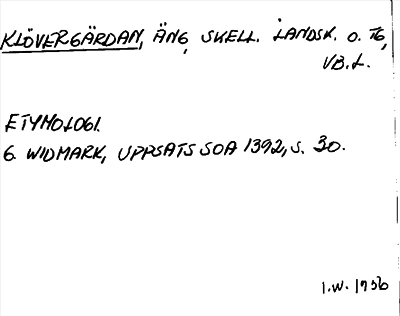 KLÖVERGÄRDAN, ÄNG, SKELL. LANDSK. O. TG,
VB.L.
ETYMOLOGI.
G. WIDMARK, UPPSATS SOA 1392, S. 30.
I.W. 1956